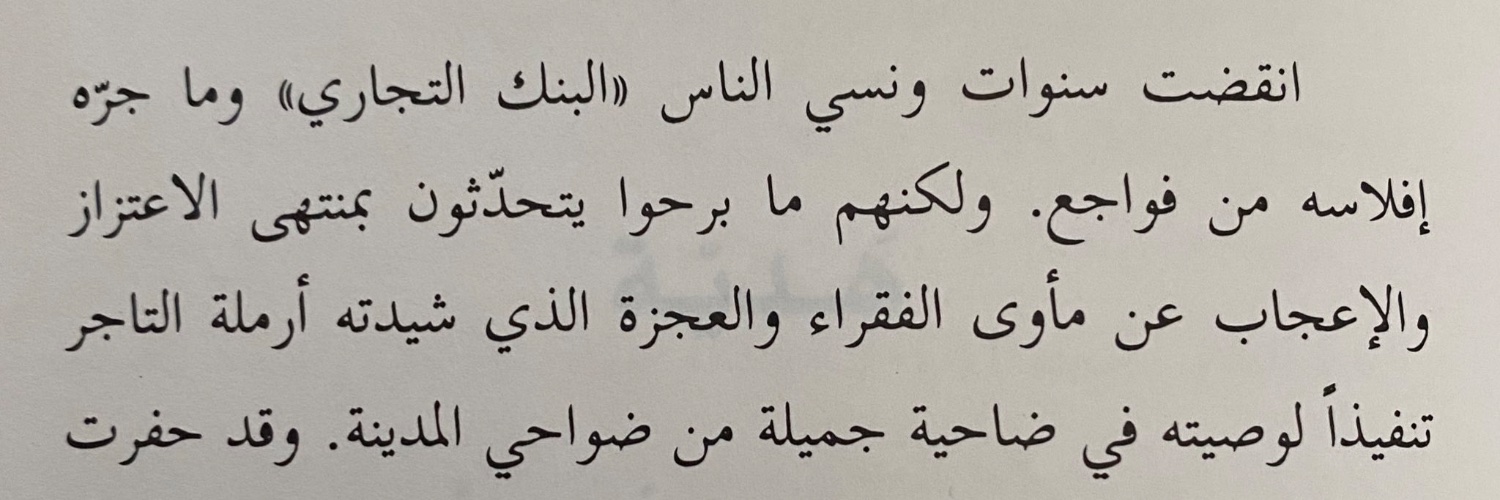 انقضت سنوات ونسي الناس «البنك التجاري» وما جرّه
إفلاسه من فواجع. ولكنهم ما برحوا يتحدّثون بمنتهى الاعتزاز
والإعجاب عن مأوى الفقراء والعجزة الذي شيدته أرملة التاجر
تنفيذاً لوصيته في ضاحية جميلة من ضواحي المدينة. وقد حفرت